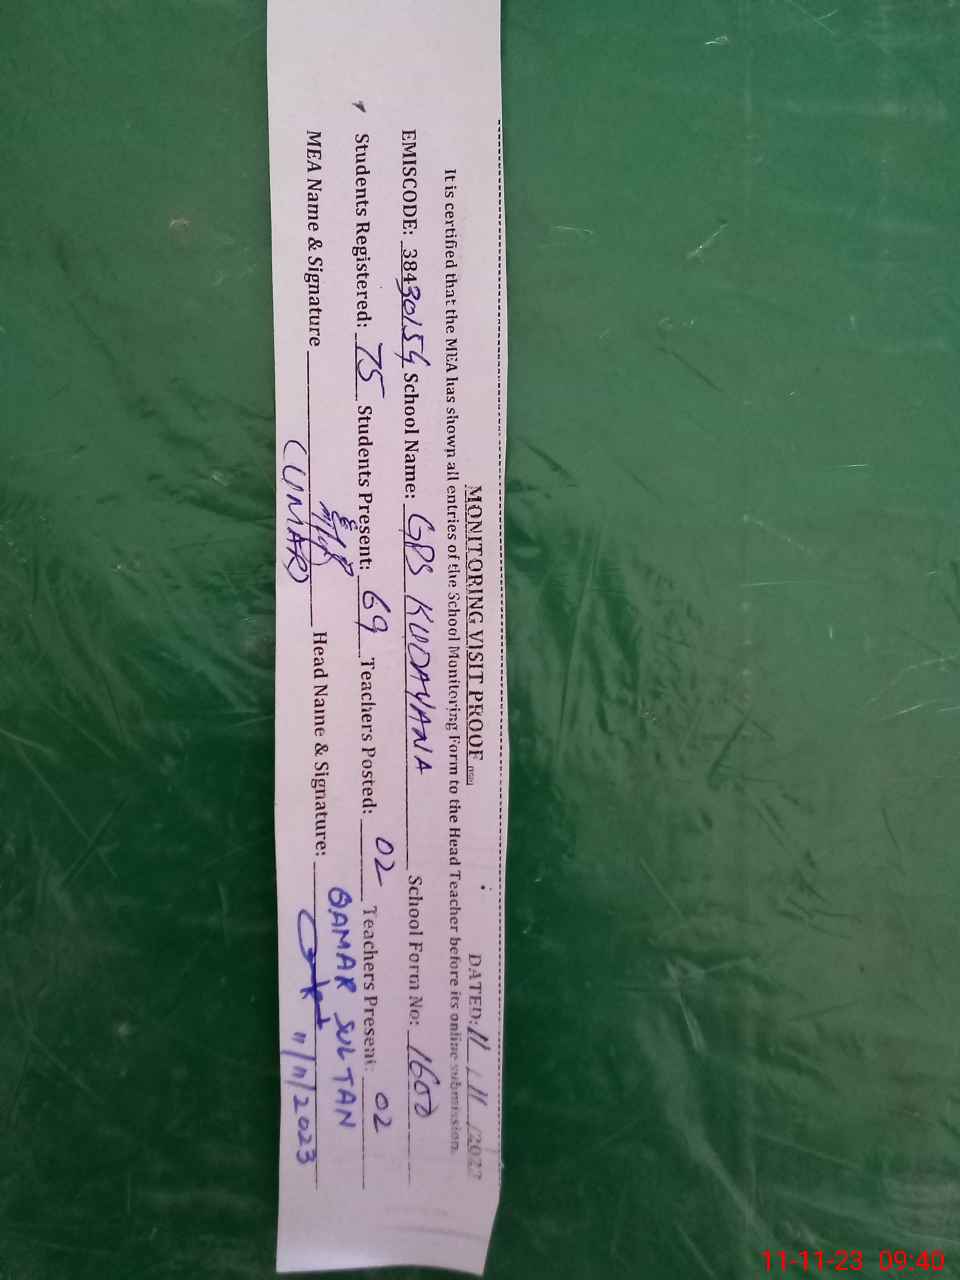 MONITORING VISIT PROOF DATED: 11/11/2023
It is certified that the MEA has shown all entries of the School Monitoring Form to the Head Teacher before its online submission.
EMISCODE: 38430154 School Name: GPS KUDAYANA School Form No: 1600
Students Registered: 75 Students Present: 69 Teachers Posted: 02 Teachers Present: 02
MEA Name & Signature (UMAR) Head Name & Signature: QAMAR SULTAN
11/11/2023
11-11-23 09:40